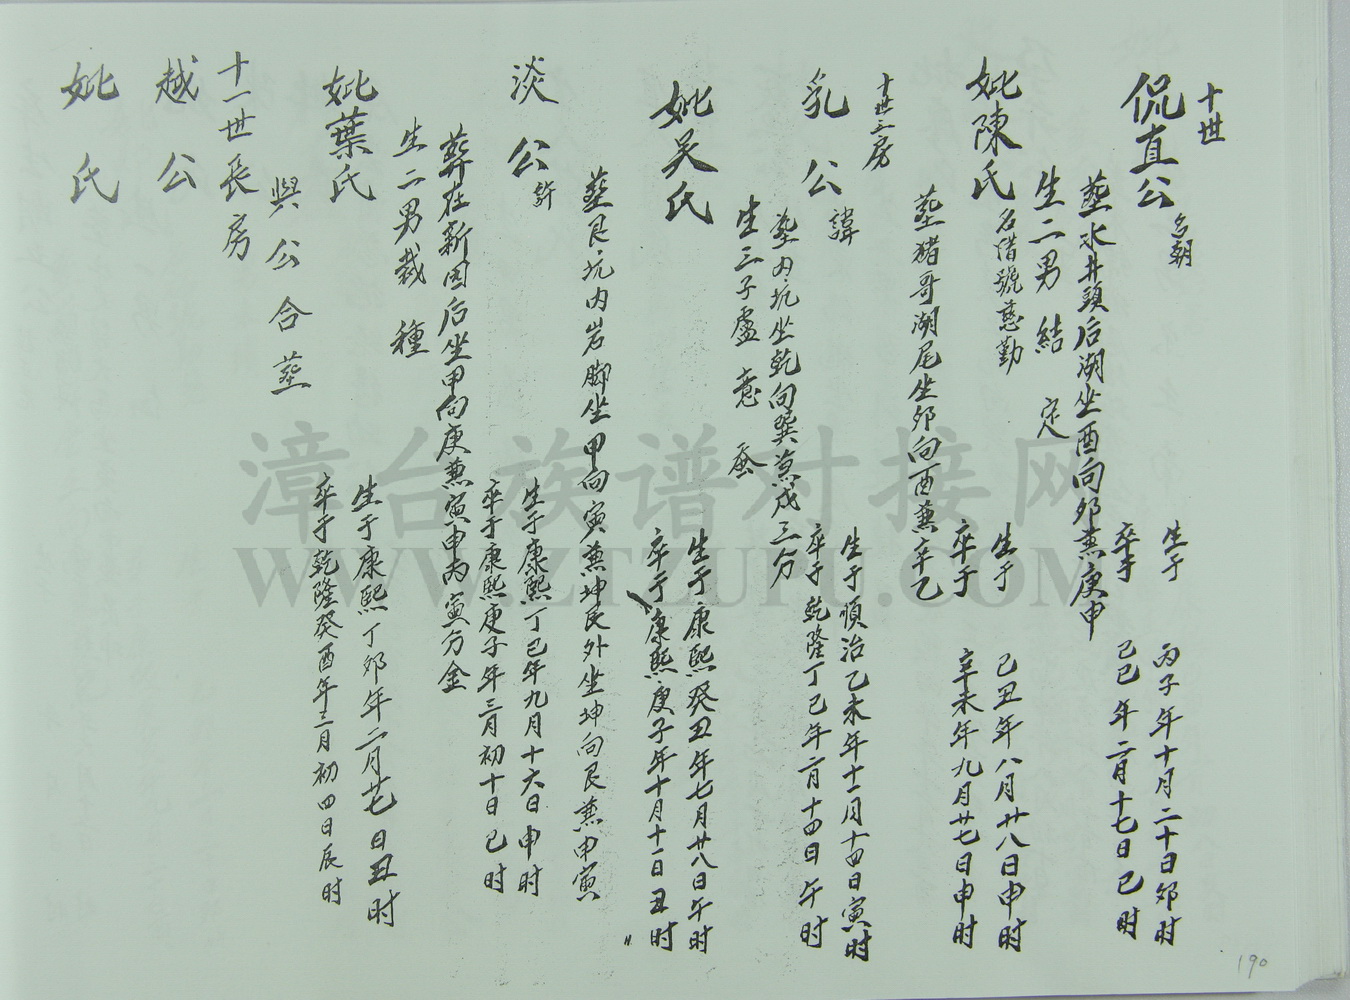 十世
侃真公 名朝
生于 丙子年十月二十日卯时
卒于 己巳年二月十七日巳时
葬水井頭后湖坐酉向卯兼庚申
生二男 結 定
妣陳氏 名借號慈勤
生于 己丑年八月廿八日申时
卒于 辛未年九月廿七日申时
葬猪哥湖尾坐卯向酉兼辛乙
十世三房
乳公 諱
生于順治乙未年十一月十四日寅时
卒于乾隆丁巳年二月十四日午时
葬内坑坐乾向巽兼戌三分
生三子盧 意 蚕
妣吴氏
生于康熙癸丑年七月廿八日午时
卒于康熙庚子年十月十一日丑时
葬艮坑内岩脚坐甲向寅兼坤艮外坐坤向艮兼申寅
淡公 許
生于康熙丁己年九月十六日申时
卒于康熙庚子年三月初十日巳时
葬在新园后坐甲向庚兼寅申丙寅分金
生二男裁 種
妣葉氏
生于康熙丁卯年二月廿七日丑时
卒于乾隆癸酉年三月初四日辰时
與公合葬
十一世長房
越公
妣氏
190
漳台族谱对接网
WWW.ZTZUPU.COM